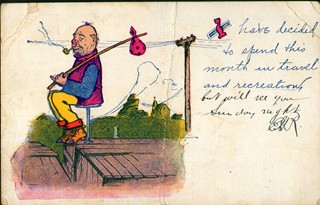 have decided
to spend this
month in travel
and recreation,
but will see you
Sunday night